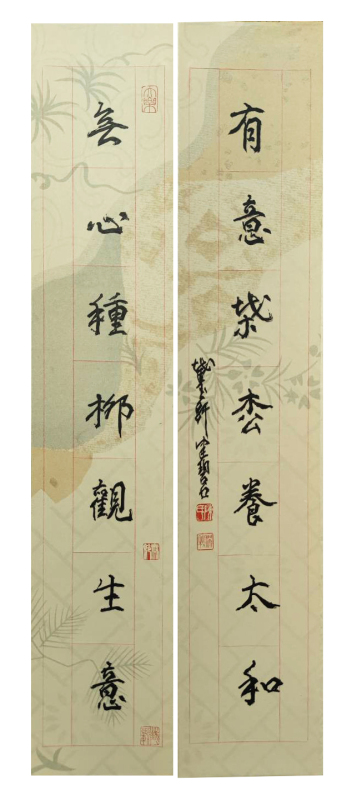 有意栽松養太和
無心種柳觀生意